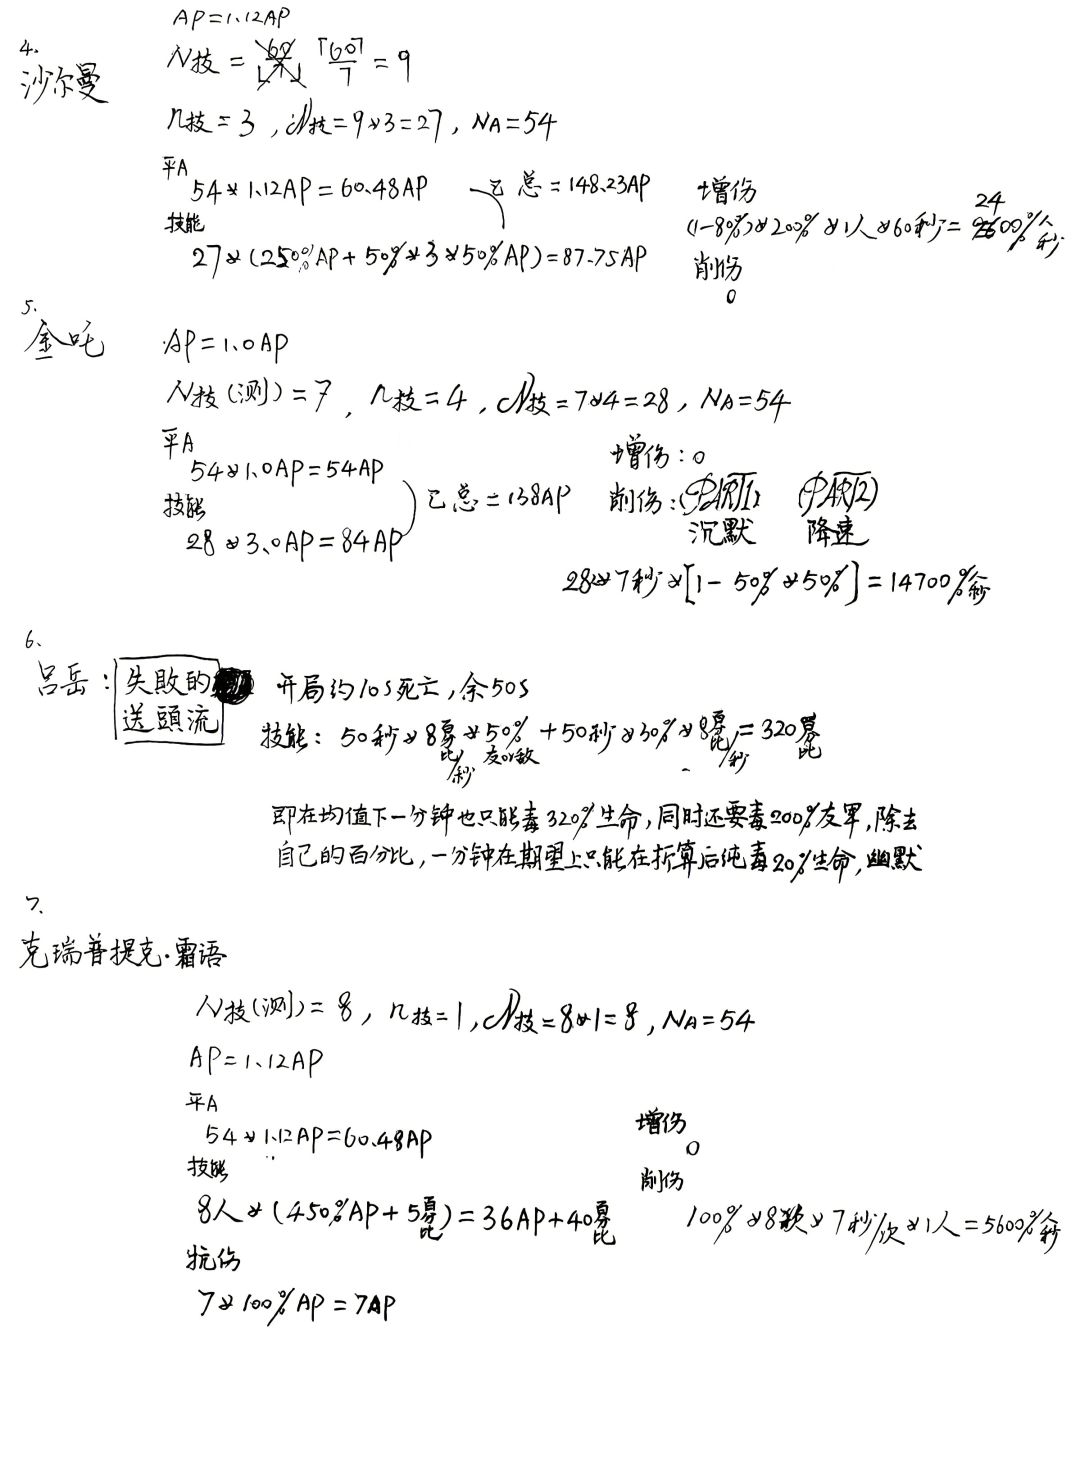 4.
沙尔曼
AP=1.12AP
N技 = ⌈60⌉/7 = 9
n技=3, N技=9*3=27, NA=54
平A
54*1.12AP=60.48AP
技能
27*(250%AP+50%*3*50%AP)=87.75AP
总=148.23AP
增伤
(1-80%)*200%*1人*60秒=2400%人秒
削伤
0
5.
金吒
AP=1.0AP
N技(测)=7, n技=4, N技=7*4=28, NA=54
平A
54*1.0AP=54AP
技能
28*3.0AP=84AP
总=138AP
增伤:0
削伤:(PART1) (PART2)
沉默 降速
28*7秒*[1-50%*50%]=14700%人秒
6.
吕岳:
失敗的
送頭流
开局约10s死亡,余50s
技能:50秒*8百分比/秒*50%友or敌+50秒*30%*8百分比/秒=320百分比
即在均值下一分钟也只能毒320%生命,同时还要毒200%友军,除去
自己的百分比,一分钟在期望上只能在折算后纯毒20%生命,幽默
7.
克瑞普提克·霜语
N技(测)=8, n技=1, N技=8*1=8, NA=54
AP=1.12AP
平A
54*1.12AP=60.48AP
技能
8人*(450%AP+5百分比)=36AP+40百分比
抗伤
7*100%AP=7AP
增伤
0
削伤
100%*8次*7秒/次*1人=5600%人秒